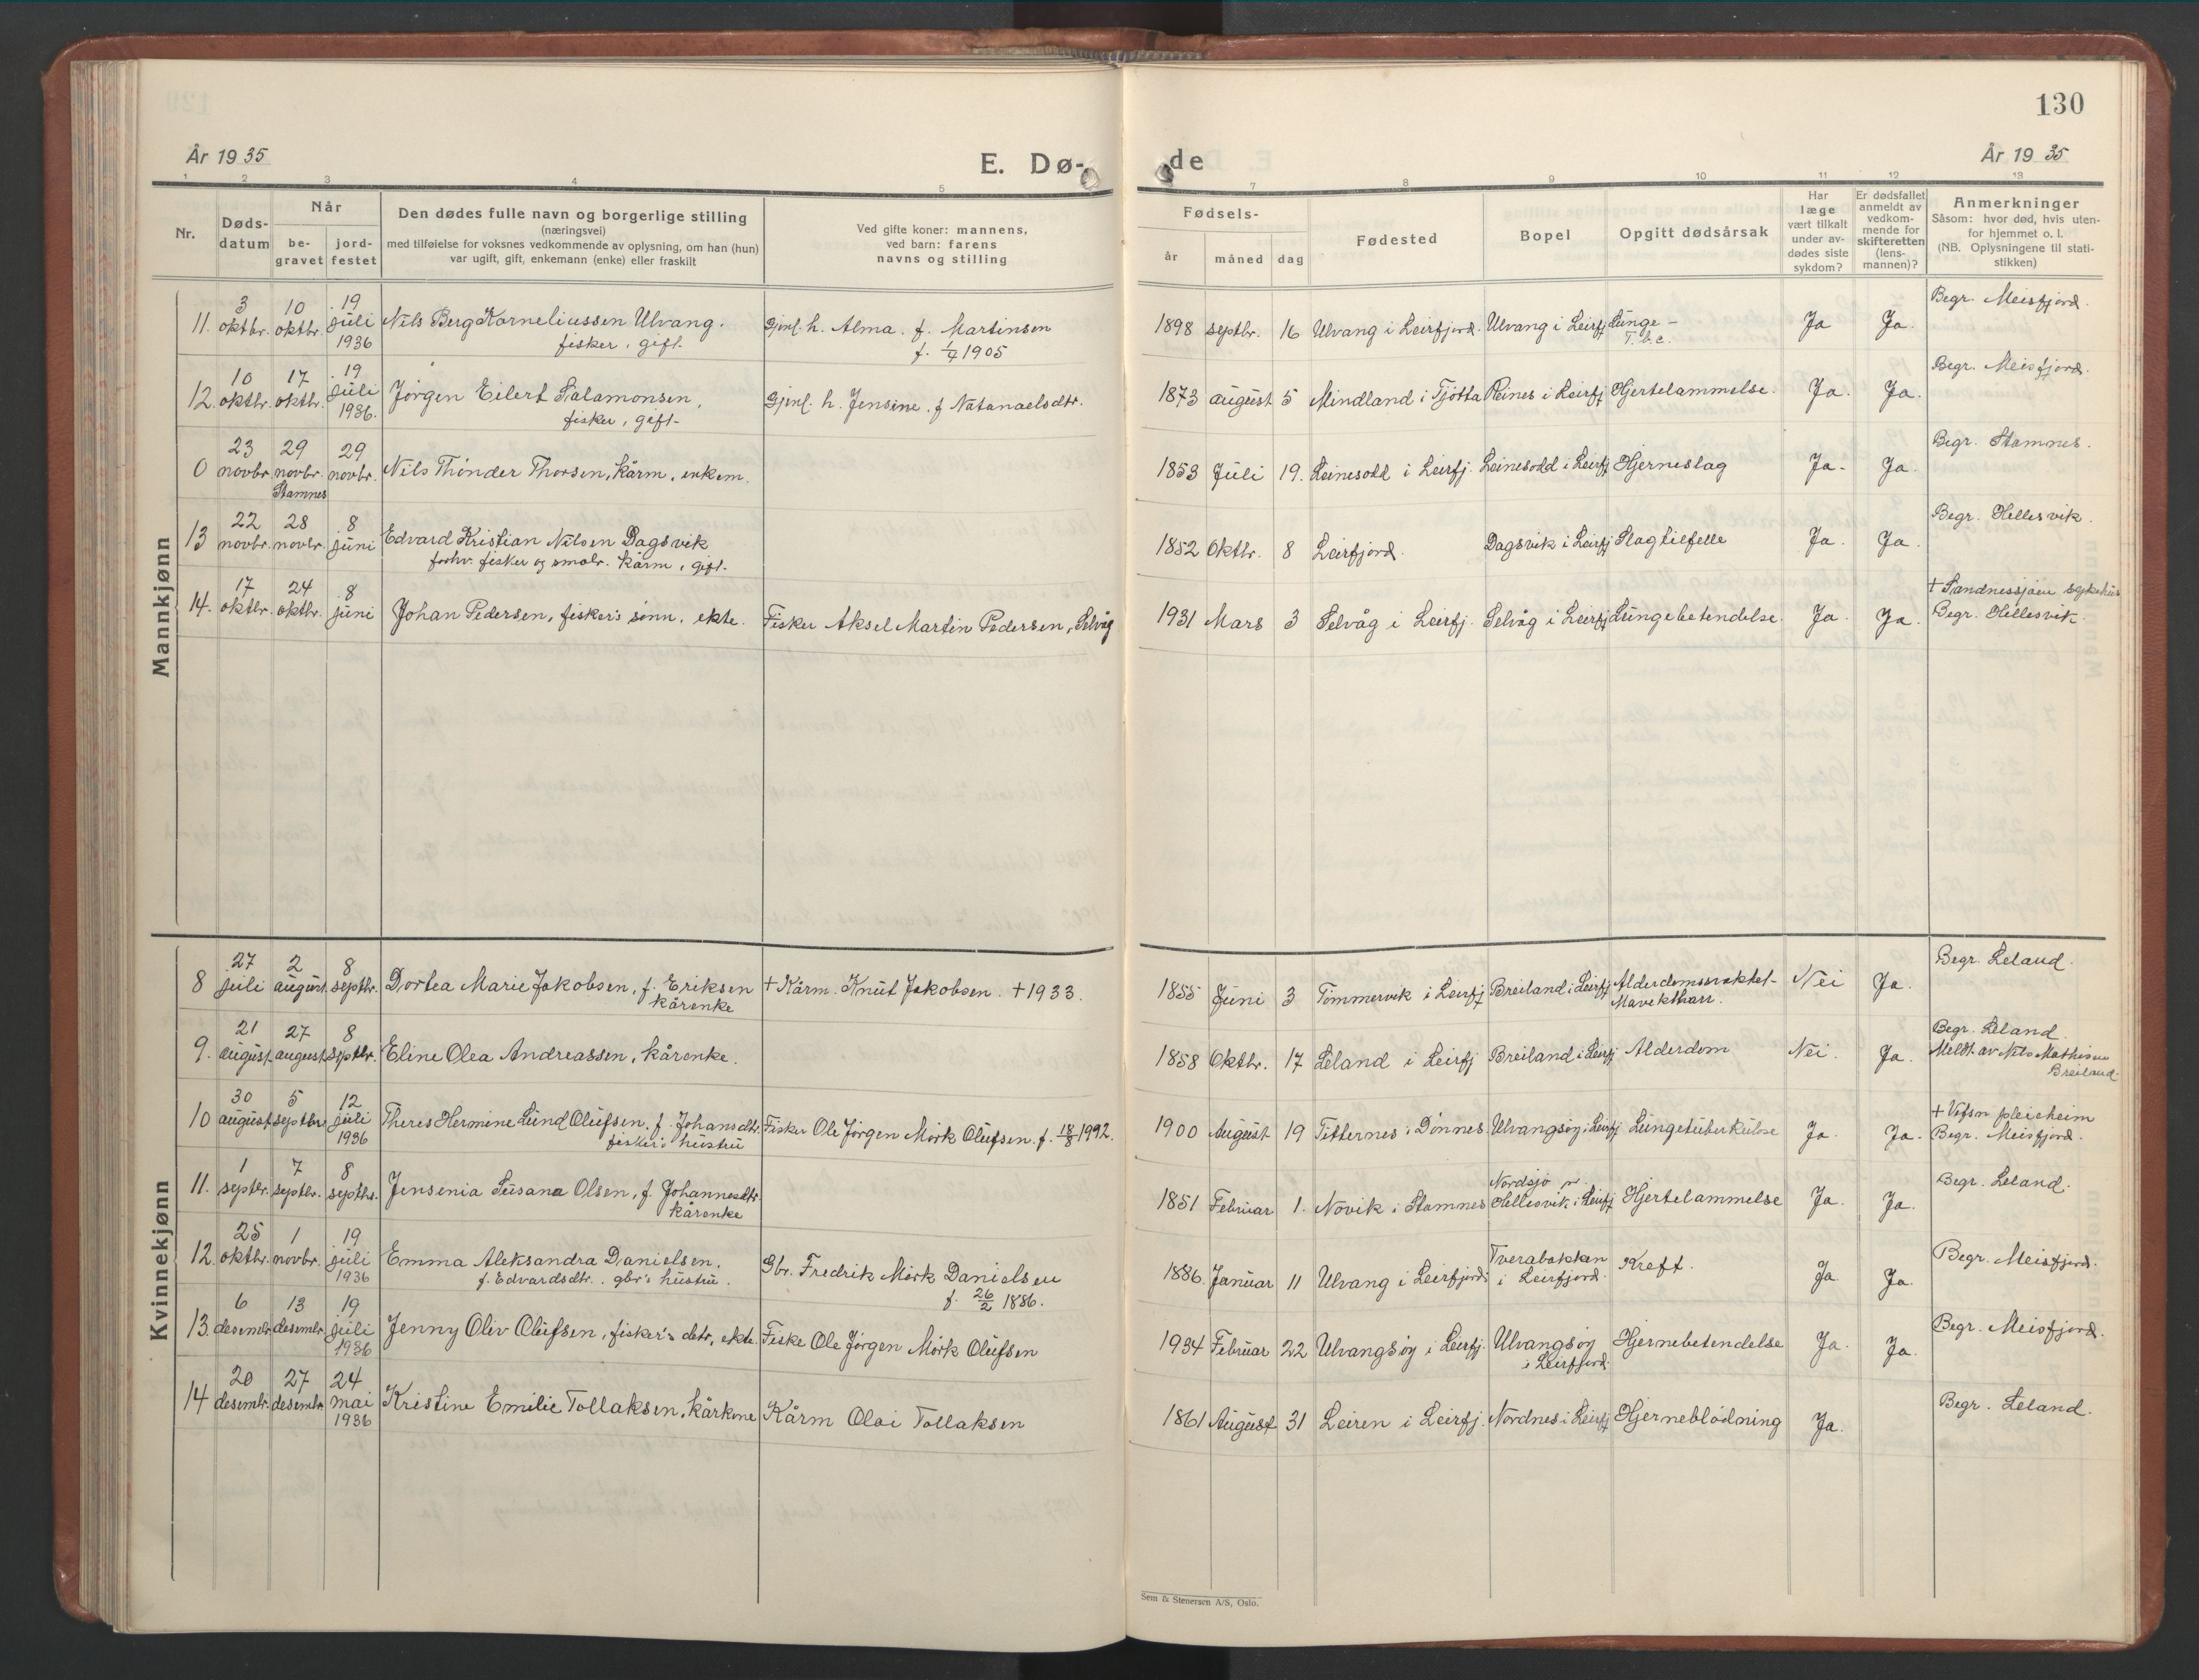 130
År 1935
E. Dø-
de
År 1935
1 2 3 4 5 7 8 9 10 11 12 13
Nr.
Døds-
datum
Når
be-
gravet
jord-
festet
Den dødes fulle navn og borgerlige stilling
(næringsvei)
med tilføielse for voksnes vedkommende av oplysning, om han (hun)
var ugift, gift, enkemann (enke) eller fraskilt
Ved gifte koner: mannens,
ved barn: farens
navns og stilling
Fødsels-
år måned dag
Fødested
Bopel
Opgitt dødsårsak
Har
læge
vært tilkalt
under av-
dødes siste
sykdom?
Er dødsfallet
anmeldt av
vedkom-
mende for
skifteretten
(lens-
mannen)?
Anmerkninger
Såsom: hvor død, hvis uten-
for hjemmet o. l.
(NB. Oplysningene til stati-
stikken)
Mannkjønn
3 10 19 Begr. Meisfjord.
11. oktbr. oktbr. juli Nils Berg Korneliussen Ulvang. Gjenl. h. Alma. f. Martinsen 1898 septbr. 16 Ulvang i Leirfjord. Ulvang i Leirfj Lunge- Ja Ja.
1936 fisker, gift. f. 1/4 1905 T.b.c.
10 17 19 Begr. Meisfjord.
12. oktbr. oktbr. juli Jørgen Eilert Salamonsen, Gjenl. h. Jensine. f Natanaelsdtr. 1873 august 5 Mindland i Tjøtta Reines i Leirfj Hjertelammelse. Ja. Ja.
1936. fisker, gift-
23 29 29 Begr. Stamnes.
0 novbr. novbr. novbr. Nils Thønder Thorsen, kårm. enkem. 1853 Juli 19. Leinesodd i Leirfj. Leinesodd i Leirfj Hjerneslag Ja. Ja.
Stamnes
22 28 8 Begr. Hellesvik.
13 novbr. novbr. juni Edvard Kristian Nilsen Dagsvik 1852 Oktbr. 8 Leirfjord. Dagsvik i Leirfj Slagtilfelle Ja. Ja.
forhv. fisker og smabr. kårm, gift.
17 24 8 + Sandnessjøen sykehus
14. oktbr. oktbr. juni Johan Pedersen, fisker's sønn, ekte. Fisker Aksel Martin Pedersen, Selvåg 1931 Mars 3 Selvåg i Leirfj. Selvåg i Leirfj Lungebetendelse. Ja. Ja. Begr. Hellesvik.
Kvinnekjønn
27 2 8 Begr. Leland.
8 juli august septbr. Dortea Marie Jakobsen, f. Eriksen + Kårm. Knut Jakobsen. + 1933. 1855 Juni 3 Tømmervik i Leirfj Breiland i Leirfj Alderdomssvakhet- Nei Ja.
kårenke
21 27 8 Begr. Leland.
9. august. august septbr. Eline Olea Andreassen, kårenke. 1858 Oktbr. 17 Leland i Leirfj Breiland i Leirfj Alderdom Nei. Ja. Meldt av Nils Mathisen
Breiland.
30 5 12 + Vefsn pleieheim
10 august septbr. juli Theres Hermine Lund Olufsen. f. Johansdtr. Fisker Ole Jørgen Mørk Olufsen. f. 18/8 1992. 1900 August 19 Titternes i Dønnes. Ulvangsøy i Leirfj Lungetuberkulose Ja. Ja. Begr. Meisfjord.
1936 fisker's hustru
1 7 8 Nordsjø Begr. Leland.
11. septbr. septbr. septbr. Jensenia Susana Olsen, f. Johannesdtr. 1851 Februar 1. Novik i Stamnes Hellesvik i Leirfj Hjertelammelse Ja. Ja.
kårenke
25 1 19 Begr. Meisfjord.
12. oktbr. novbr. juli Emma Aleksandra Danielsen. Gbr. Fredrik Mørk Danielsen 1886. Januar 11 Ulvang i Leirfjord Tverabakkan i Leirfjord. Kreft. Ja. Ja.
1936 f. Edvardsdtr. gbr's hustru. f. 26/2 1886.
6 13 19 Begr. Meisfjord.
13. desembr. desembr. juli Jenny Oliv Olufsen, fisker's dtr, ekte. Fiske Ole Jørgen Mørk Olufsen 1934 Februar 22 Ulvangsøy i Leirfj. Ulvangsøy Hjernebetendelse Ja. Ja.
1936 i Leirfjord.
20 27 24 Begr. Leland.
14 desembr. desembr. mai Kristine Emilie Tollaksen, kårkone Kårm Oloi Tollaksen 1861 August 31 Leiren i Leirfj. Nordnes i Leirfj Hjerneblødning Ja.
1936
Sem & Stenersen A/S, Oslo.